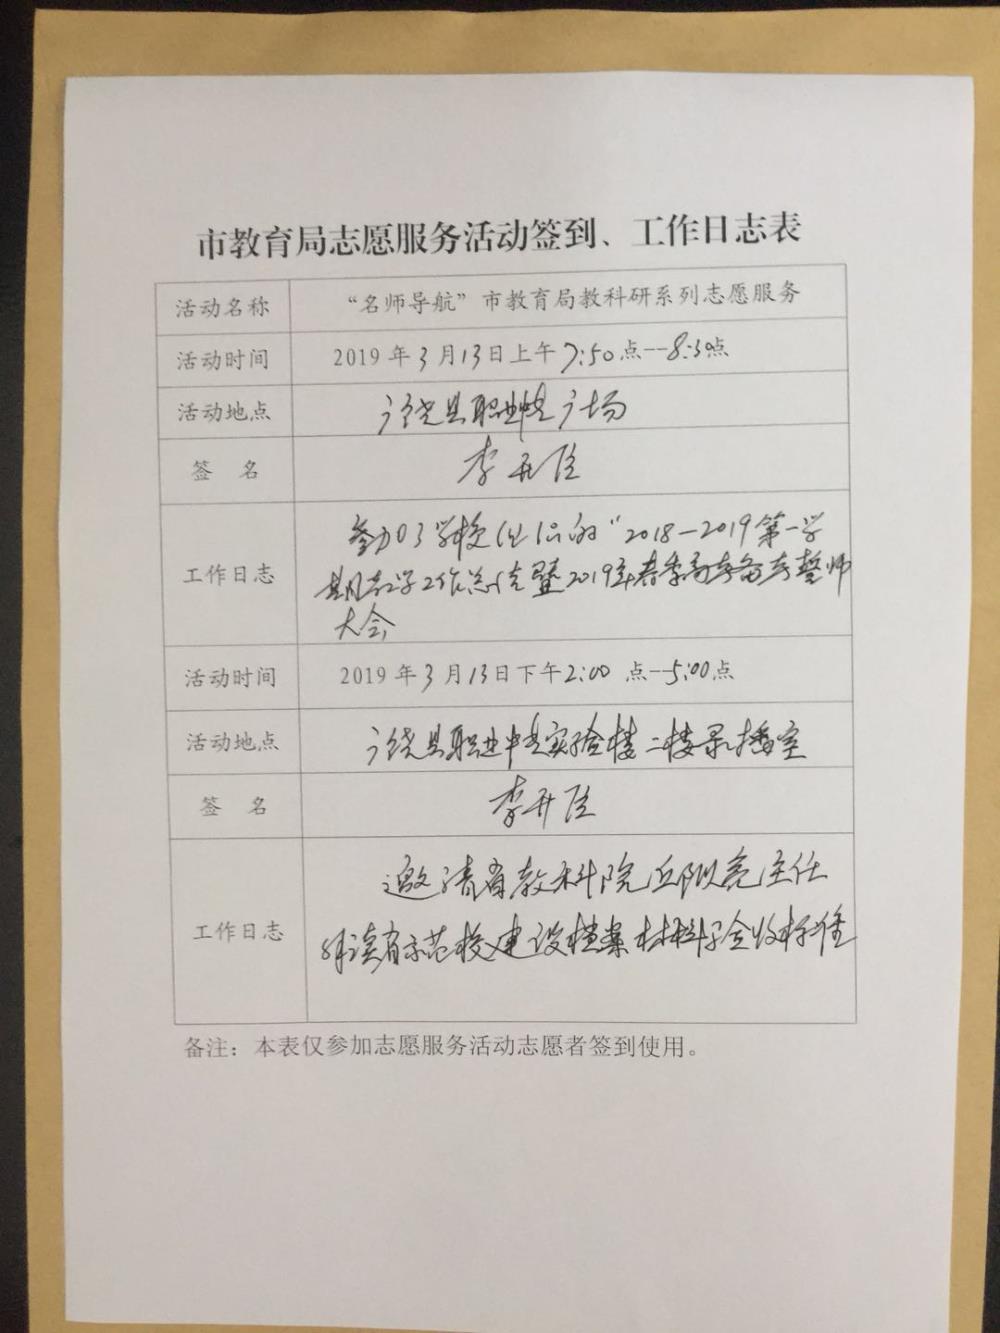 市教育局志愿服务活动签到、工作日志表
活动名称 “名师导航”市教育局教科研系列志愿服务
活动时间 2019年3月13日上午7:50点--8:30点
活动地点 广饶县职业中专广场
签 名 李
工作日志 参加了学校组织的“2018—2019第一学
期教学工作总结暨2019年春季高考备考誓师
大会
活动时间 2019年3月13日下午2:00点--5:00点
活动地点 广饶县职业中专实验楼二楼录播室
签 名 李
工作日志 邀请省教科院丘亮主任
解读省示范校建设档案材料验收标准
备注：本表仅参加志愿服务活动志愿者签到使用。